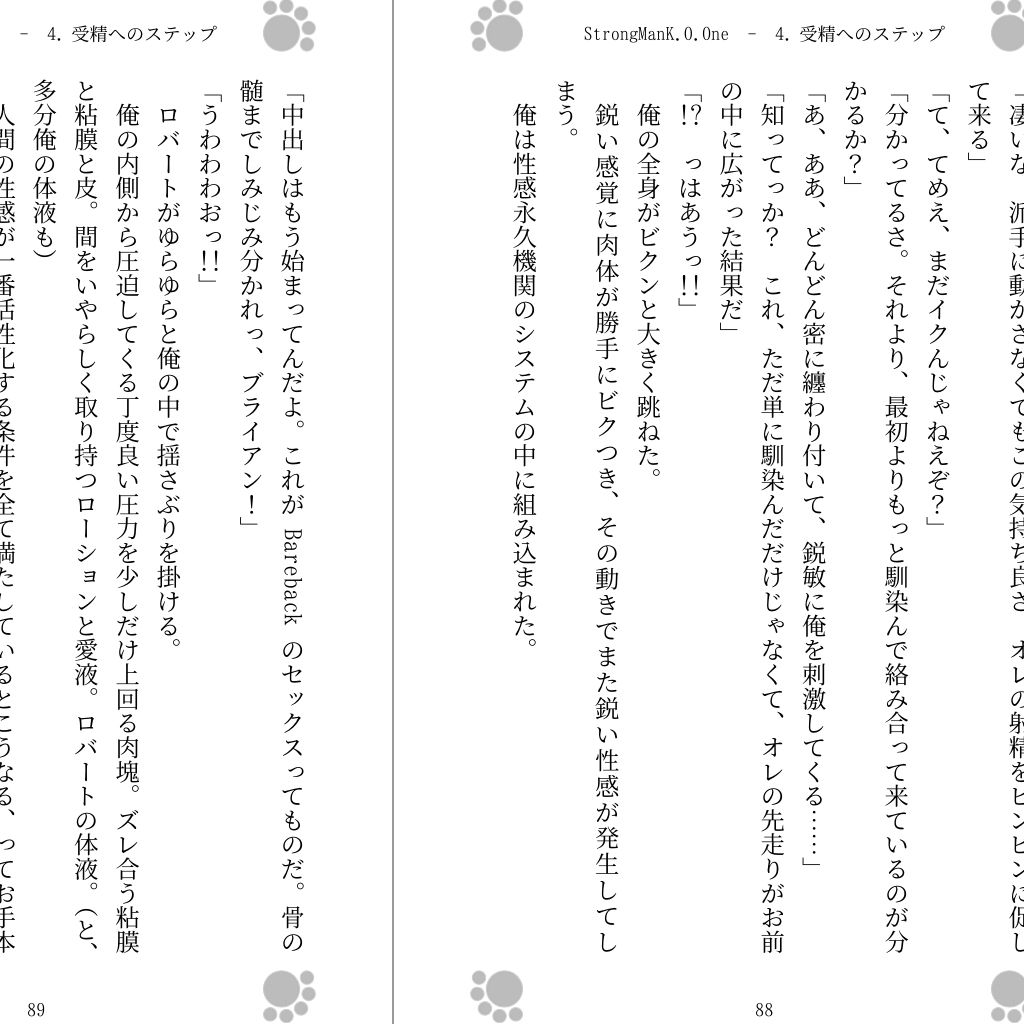 StrongManK.O.One － 4. 受精へのステップ
「凄いな　派手に動かさなくてもこの気持ち良さ　オレの射精をビンビンに促し
て来る」
「て、てめえ、まだイクんじゃねえぞ？」
「分かってるさ。それより、最初よりもっと馴染んで絡み合って来ているのが分
かるか？」
「あ、ああ、どんどん密に纏わり付いて、鋭敏に俺を刺激してくる……」
「知ってっか？　これ、ただ単に馴染んだだけじゃなくて、オレの先走りがお前
の中に広がった結果だ」
「!?　っはあうっ!!」
俺の全身がビクンと大きく跳ねた。
鋭い感覚に肉体が勝手にビクつき、その動きでまた鋭い性感が発生してし
まう。
俺は性感永久機関のシステムの中に組み込まれた。
88
－ 4. 受精へのステップ
「中出しはもう始まってんだよ。これが Bareback のセックスってものだ。骨の
髄までしみじみ分かれっ、ブライアン！」
「うわわわおっ!!」
ロバートがゆらゆらと俺の中で揺さぶりを掛ける。
俺の内側から圧迫してくる丁度良い圧力を少しだけ上回る肉塊。ズレ合う粘膜
と粘膜と皮。間をいやらしく取り持つローションと愛液。ロバートの体液。（と、
多分俺の体液も）
人間の性感が一番活性化する条件を全て満たしているとこうなる、ってお手本
89